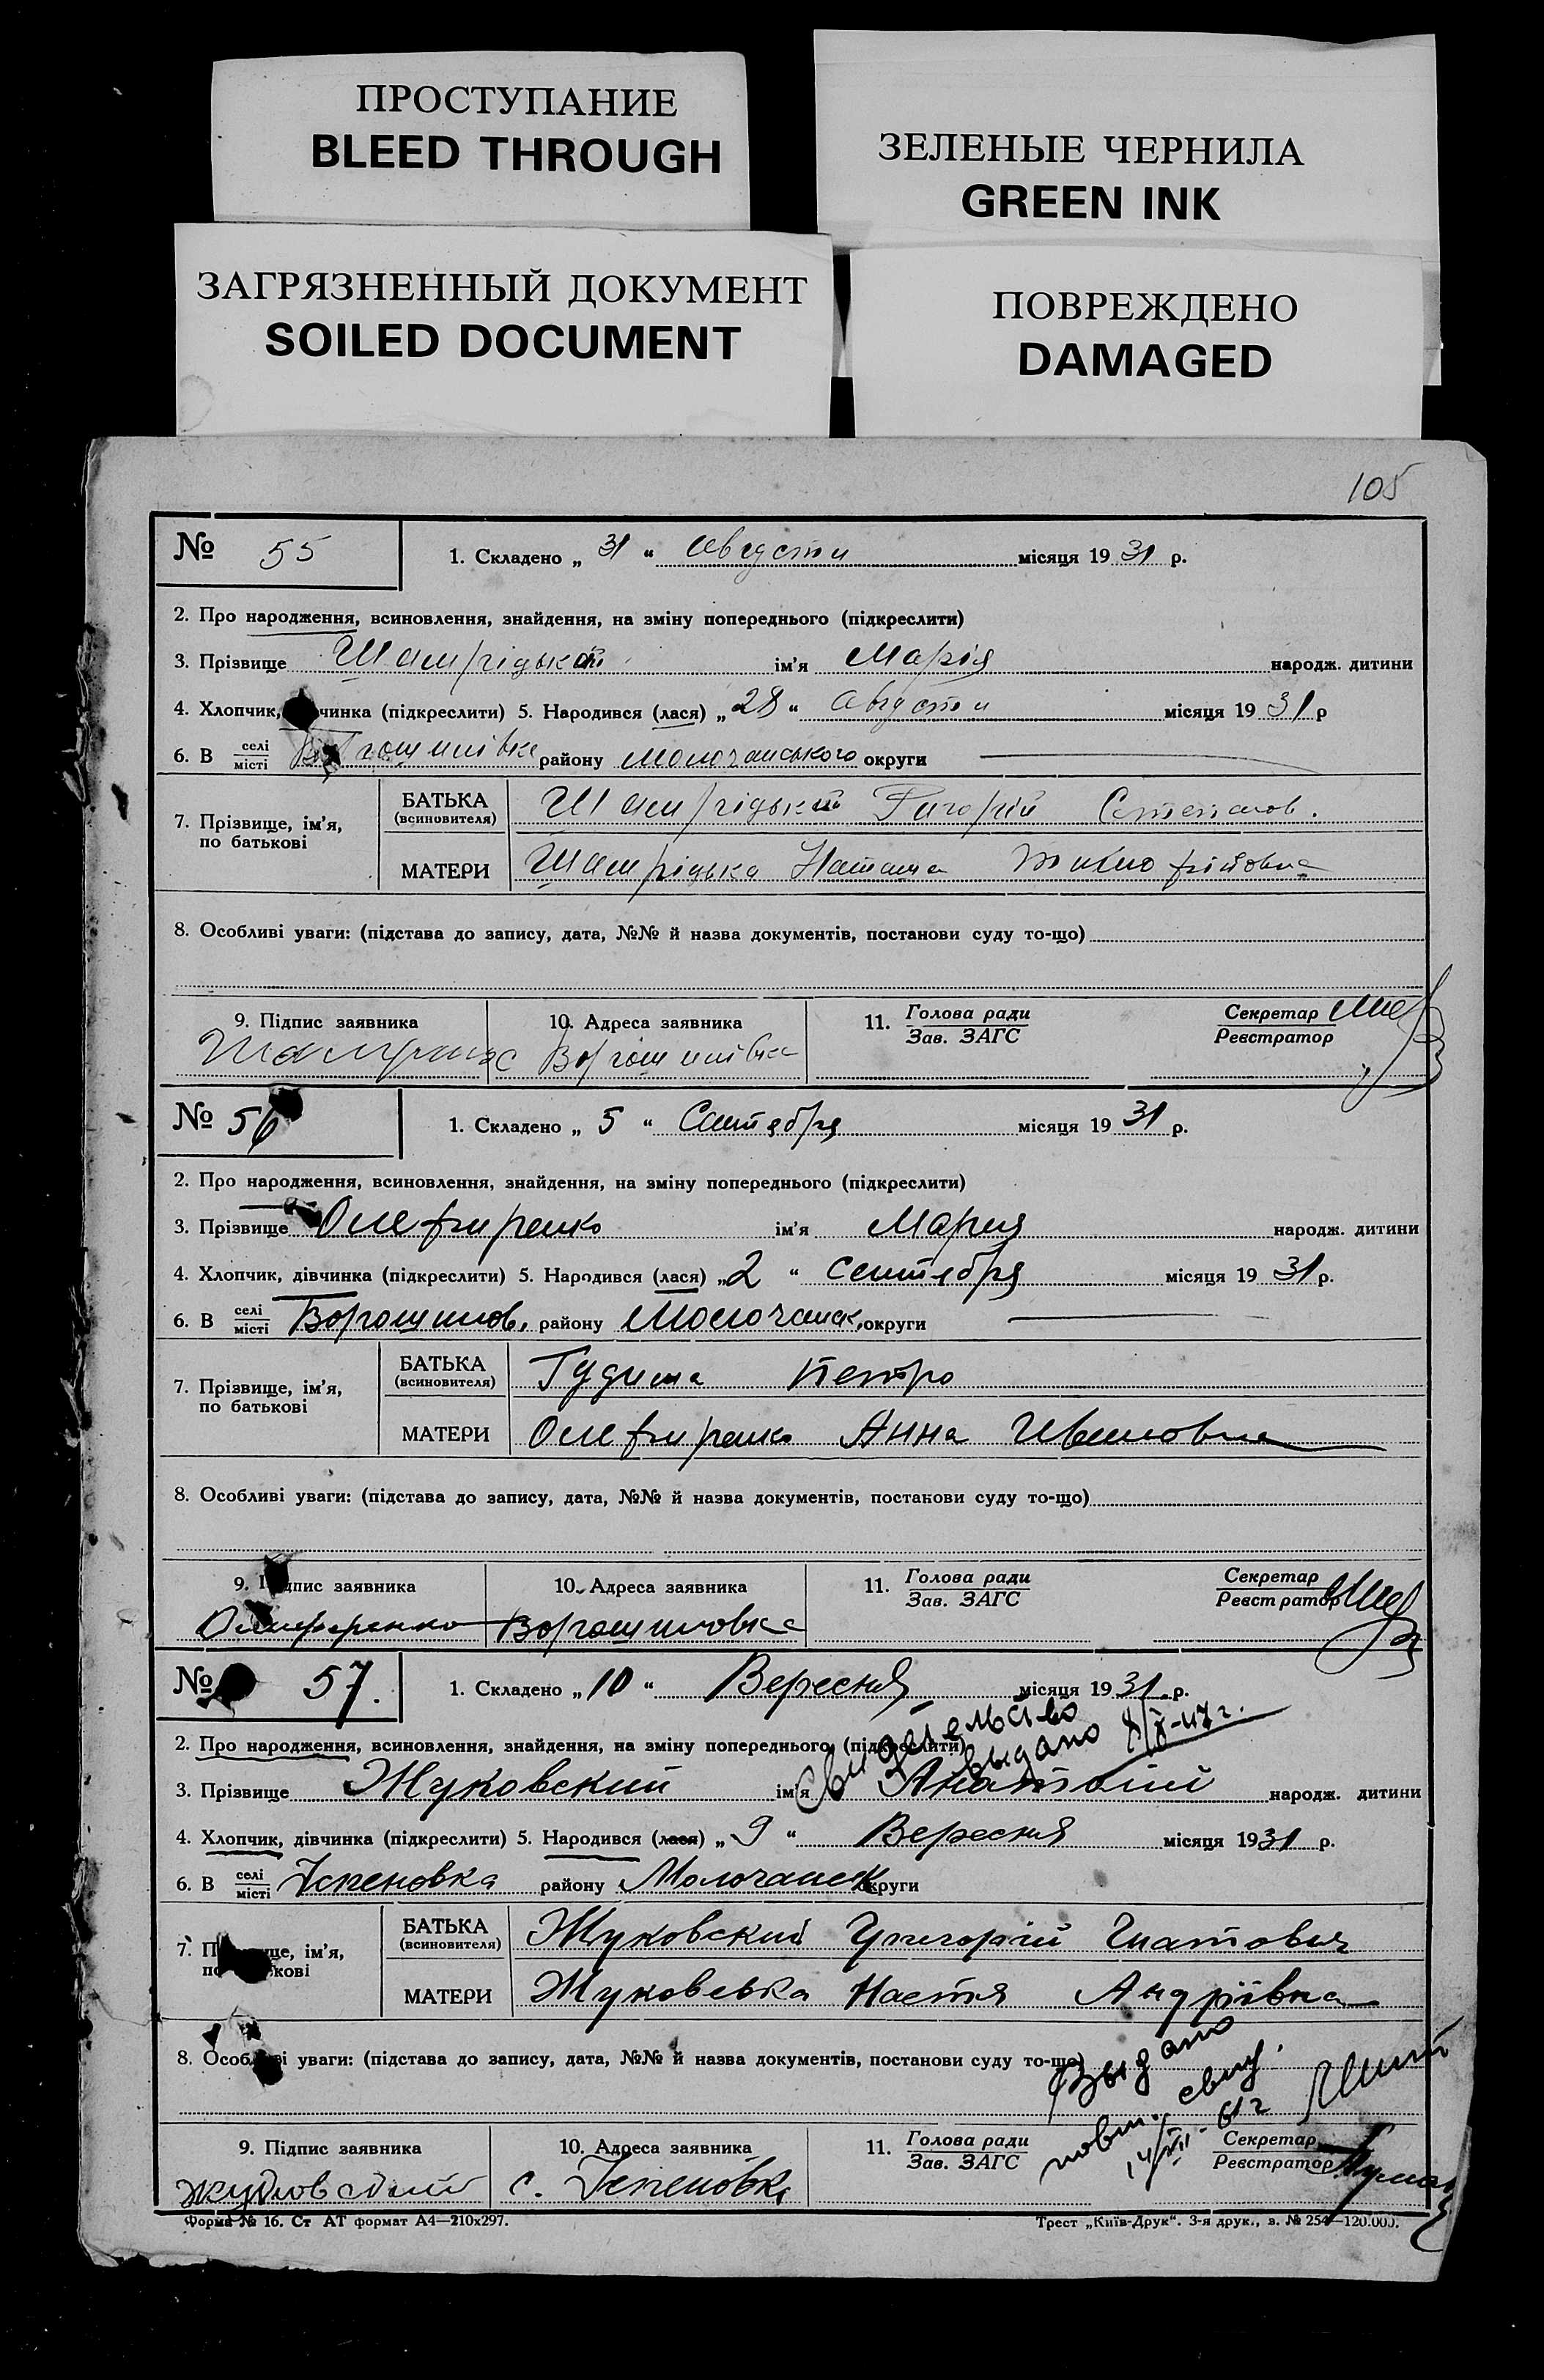 ПРОСТУПАНИЕ
BLEED THROUGH
ЗЕЛЕНЫЕ ЧЕРНИЛА
GREEN INK
ЗАГРЯЗНЕННЫЙ ДОКУМЕНТ
SOILED DOCUMENT
ПОВРЕЖДЕНО
DAMAGED
105
№ 55 1. Складено „ 31 “ Августа місяця 19 31 р.
2. Про народження, всиновлення, знайдення, на зміну попереднього (підкреслити)
3. Прізвище ім'я Марія народж. дитини
4. Хлопчик, чинка (підкреслити) 5. Народився (лася) „ 28 “ Августа місяця 19 31 р
6. В селі/місті району Молочанського округи
7. Прізвище, ім'я, по батькові БАТЬКА (всиновителя) Григорій Степанов.
МАТЕРИ Наташа
8. Особливі уваги: (підстава до запису, дата, №№ й назва документів, постанови суду то-що)
9. Підпис заявника 10. Адреса заявника 11. Голова ради/Зав. ЗАГС Секретар/Реєстратор
с Ворошилівка
№ 56 1. Складено „ 5 “ Сентября місяця 19 31 р.
2. Про народження, всиновлення, знайдення, на зміну попереднього (підкреслити)
3. Прізвище Олефиренко ім'я Мария народж. дитини
4. Хлопчик, дівчинка (підкреслити) 5. Народився (лася) „ 2 “ Сентября місяця 19 31 р.
6. В селі/місті Ворошилов. району Молочанск. округи
7. Прізвище, ім'я, по батькові БАТЬКА (всиновителя) Гудима Петро
МАТЕРИ Олефиренко Анна Ивановна
8. Особливі уваги: (підстава до запису, дата, №№ й назва документів, постанови суду то-що)
9. Підпис заявника 10. Адреса заявника 11. Голова ради/Зав. ЗАГС Секретар/Реєстратор
Ворошиловка
№ 57. 1. Складено „ 10 “ Вересня місяця 19 31 р.
Свидетельство
выдано 8/X-47 г.
2. Про народження, всиновлення, знайдення, на зміну попереднього (підкреслити)
3. Прізвище Жуковский ім'я Анатолий народж. дитини
4. Хлопчик, дівчинка (підкреслити) 5. Народився (лася) „ 9 “ Вересня місяця 19 31 р.
6. В селі/місті Успеновка району Молочанск округи
7. ім'я, БАТЬКА (всиновителя) Жуковский Григорій Гнатович
МАТЕРИ Жуковська Настя Андріївна
8. Особливі уваги: (підстава до запису, дата, №№ й назва документів, постанови суду то-що)
Выдано
повт. свид.
14/VII-61 г
9. Підпис заявника 10. Адреса заявника 11. Голова ради/Зав. ЗАГС Секретар/Реєстратор
с. Успеновка
Форма № 16. Ст АТ формат А4—210х297.
Трест „Київ-Друк“. 3-я друк., з. № 254—120.000.